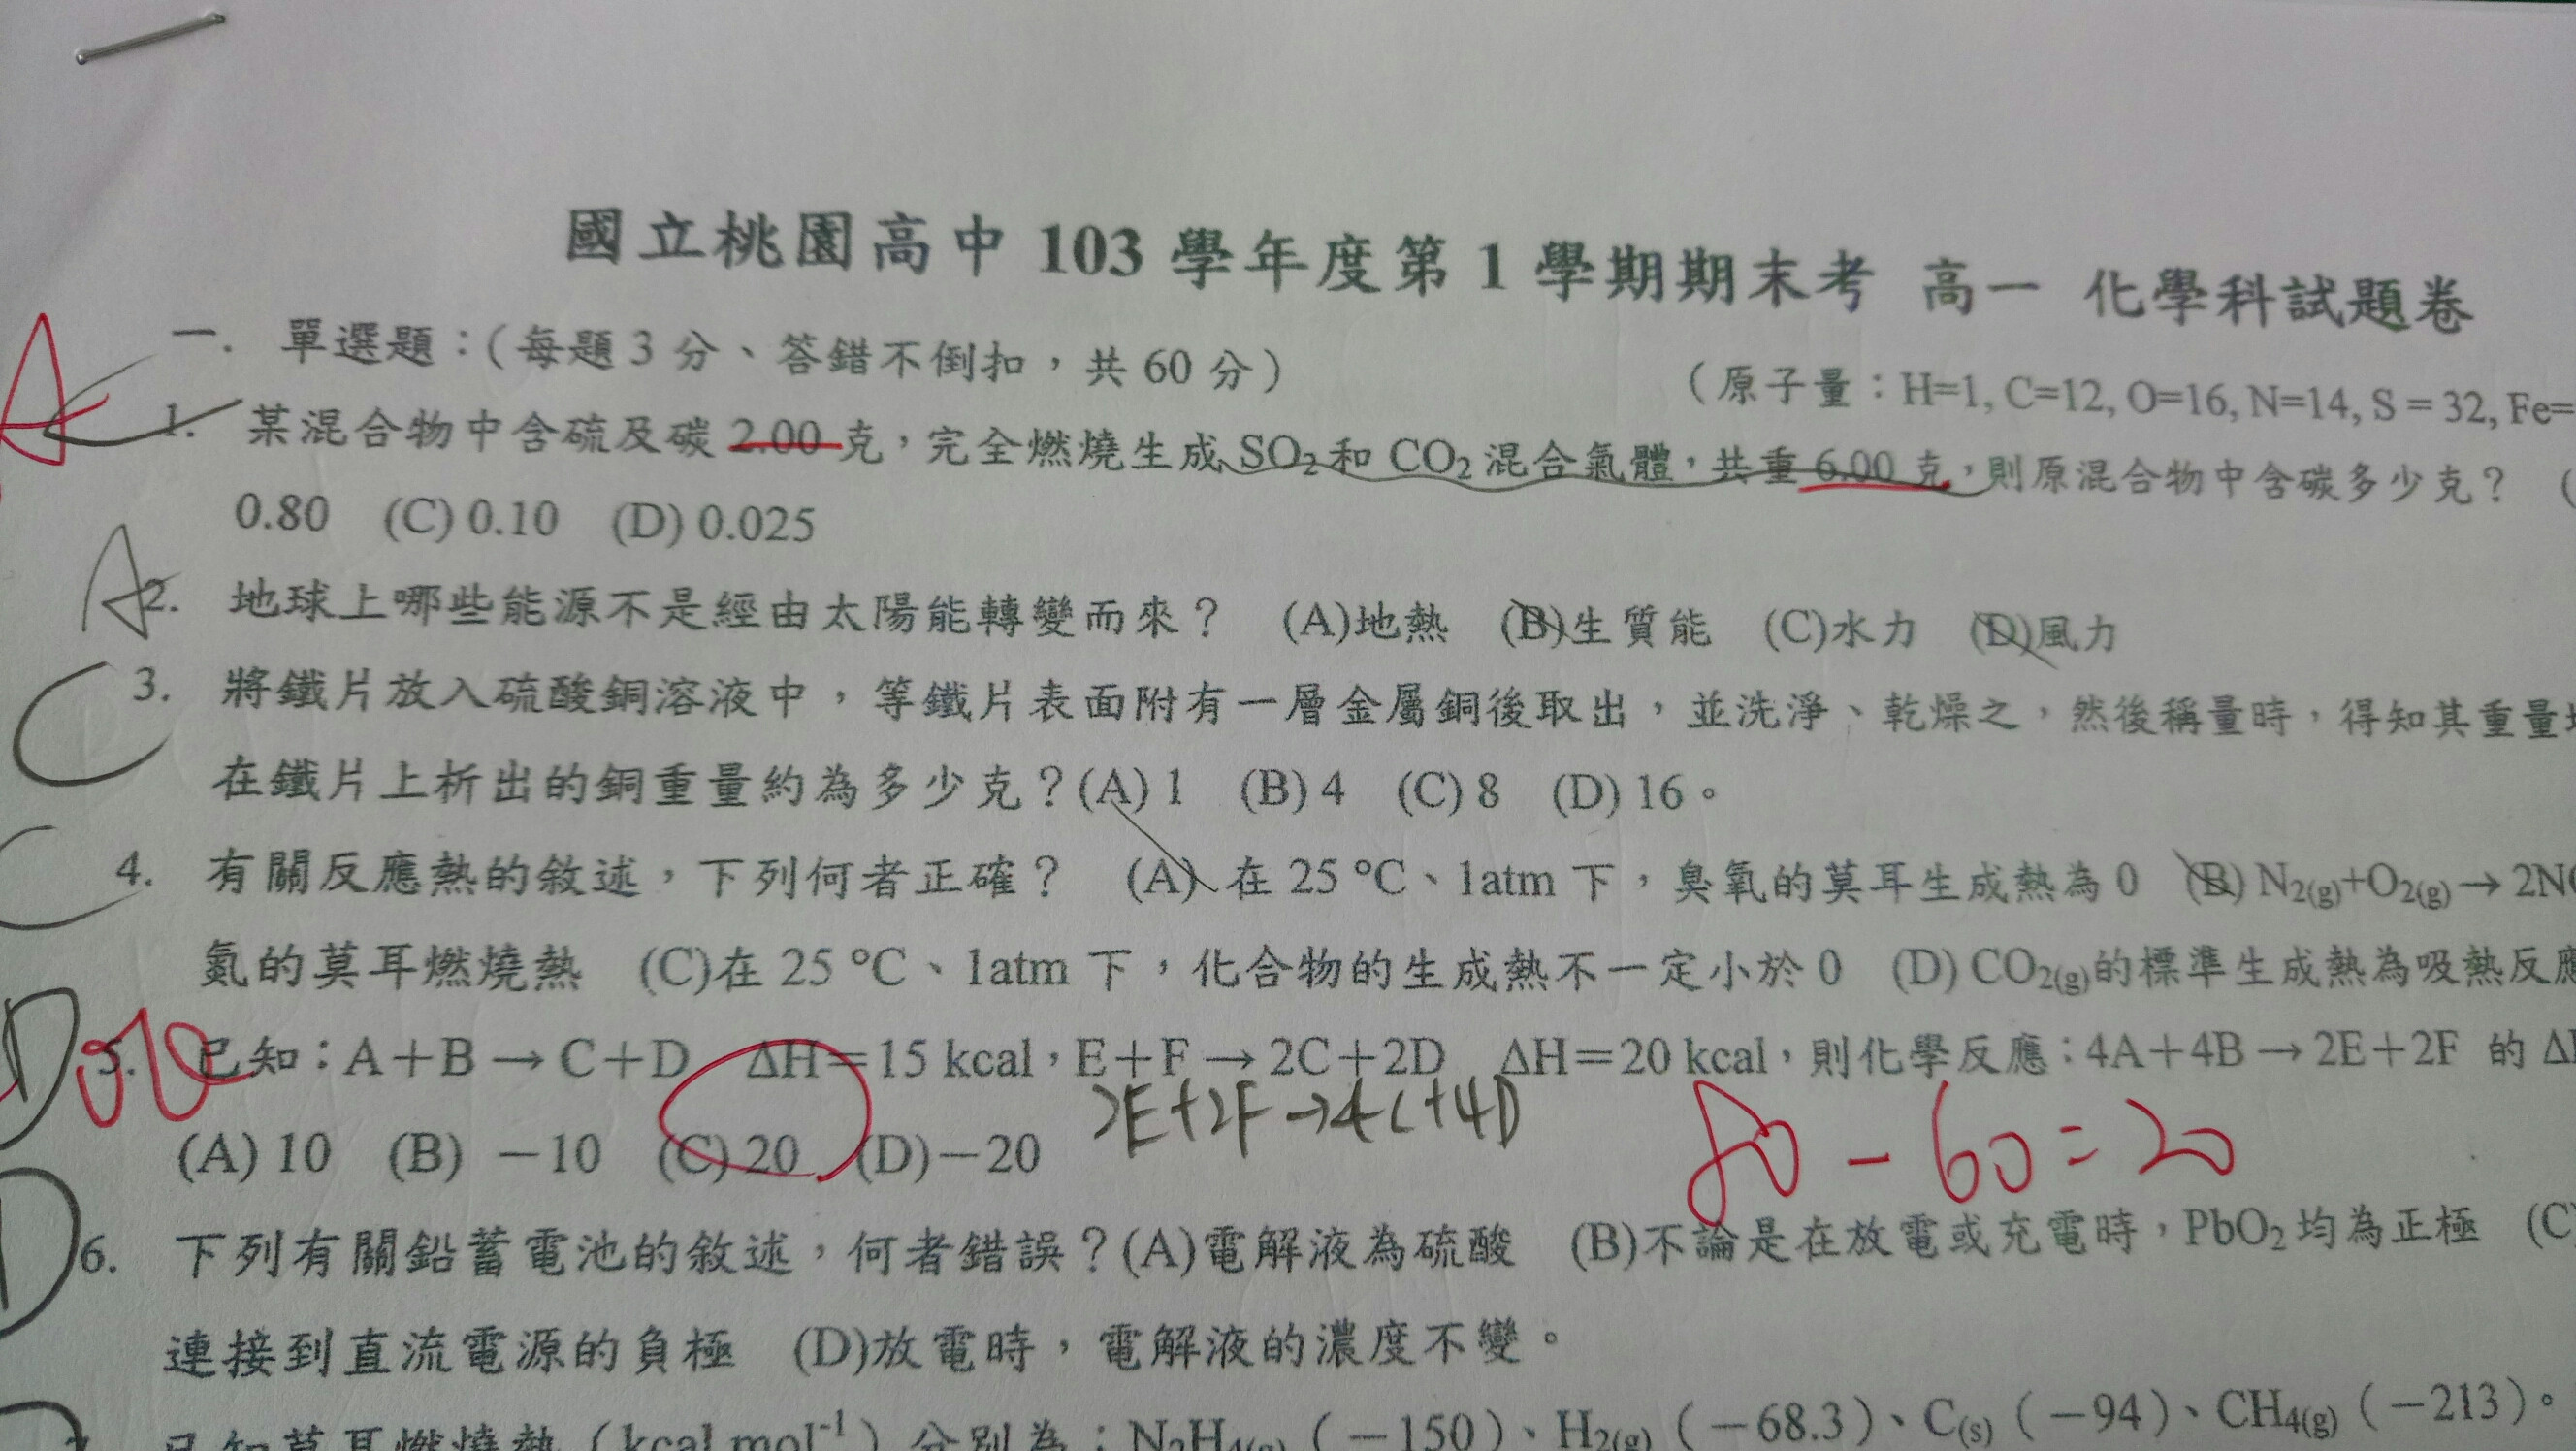 國立桃園高中 103 學年度第 1 學期期末考 高一 化學科試題卷
一. 單選題：(每題 3 分、答錯不倒扣，共 60 分)
(原子量：H=1, C=12, O=16, N=14, S = 32, Fe=
A
1. 某混合物中含硫及碳 2.00 克，完全燃燒生成 SO₂和 CO₂混合氣體，共重 6.00 克，則原混合物中含碳多少克？ (
0.80 (C) 0.10 (D) 0.025
A 2. 地球上哪些能源不是經由太陽能轉變而來？ (A)地熱 (B)生質能 (C)水力 (D)風力
C 3. 將鐵片放入硫酸銅溶液中，等鐵片表面附有一層金屬銅後取出，並洗淨、乾燥之，然後稱量時，得知其重量
在鐵片上析出的銅重量約為多少克？(A) 1 (B) 4 (C) 8 (D) 16。
C 4. 有關反應熱的敘述，下列何者正確？ (A) 在 25 °C、1atm 下，臭氧的莫耳生成熱為 0 (B) N₂(g)+O₂(g)→ 2N
氮的莫耳燃燒熱 (C)在 25 °C、1atm 下，化合物的生成熱不一定小於 0 (D) CO₂(g)的標準生成熱為吸熱反應
D 5. 已知：A＋B → C＋D ΔH＝15 kcal，E＋F → 2C＋2D ΔH＝20 kcal，則化學反應：4A＋4B → 2E＋2F 的 Δ
2E+2F→4C+4D
(A) 10 (B) －10 (C) 20 (D)－20
80－60=20
D 6. 下列有關鉛蓄電池的敘述，何者錯誤？(A)電解液為硫酸 (B)不論是在放電或充電時，PbO₂均為正極 (C
連接到直流電源的負極 (D)放電時，電解液的濃度不變。
已知莫耳燃燒熱 (kcal mol⁻¹) 分別為：N₂H₄(g) (－150)、H₂(g) (－68.3)、C(s) (－94)、CH₄(g) (－213)。